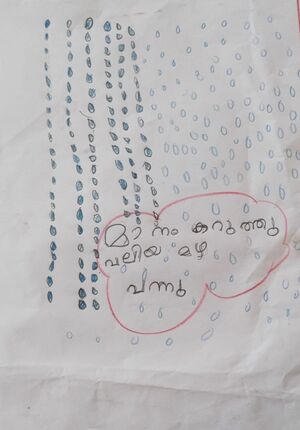 മാനം കറുത്തു
വലിയ മഴ
വന്നു